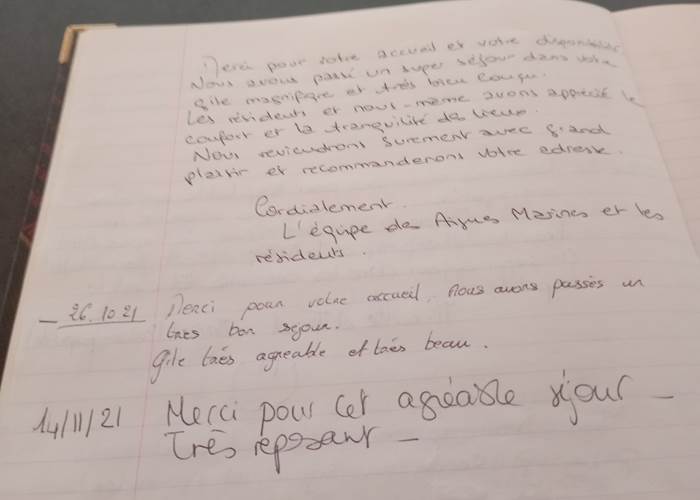 Merci pour votre accueil et votre disponibilité
Nous avons passé un super séjour dans votre
gîte magnifique et très bien conçu.
Les résidents et nous-même avons apprécié le
confort et la tranquilité des lieux.
Nous reviendrons surement avec grand
plaisir et recommanderons votre adresse.
Cordialement.
L'équipe des Aigues Marines et les
résidents.
- 26.10 21 Merci pour votre accueil, Nous avons passés un
très bon séjour.
Gîte très agréable et très beau.
14/11/21 Merci pour cet agréable séjour -
Très reposant -